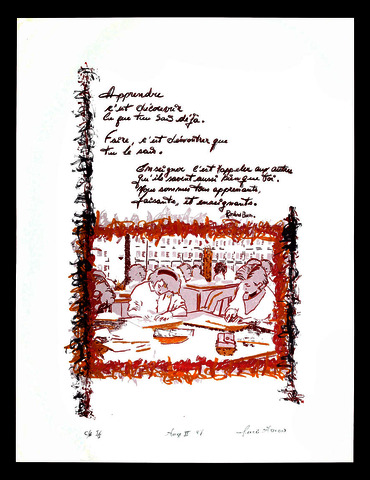 Apprendre
c'est découvrir
ce que tu sais déjà.
Faire, c'est démontrer que
tu le sais.
Enseigner c'est rappeler aux autres
qu'ils savent aussi bien que toi.
Nous sommes tous apprenants,
faisants, et enseignants.
Richard Bach.